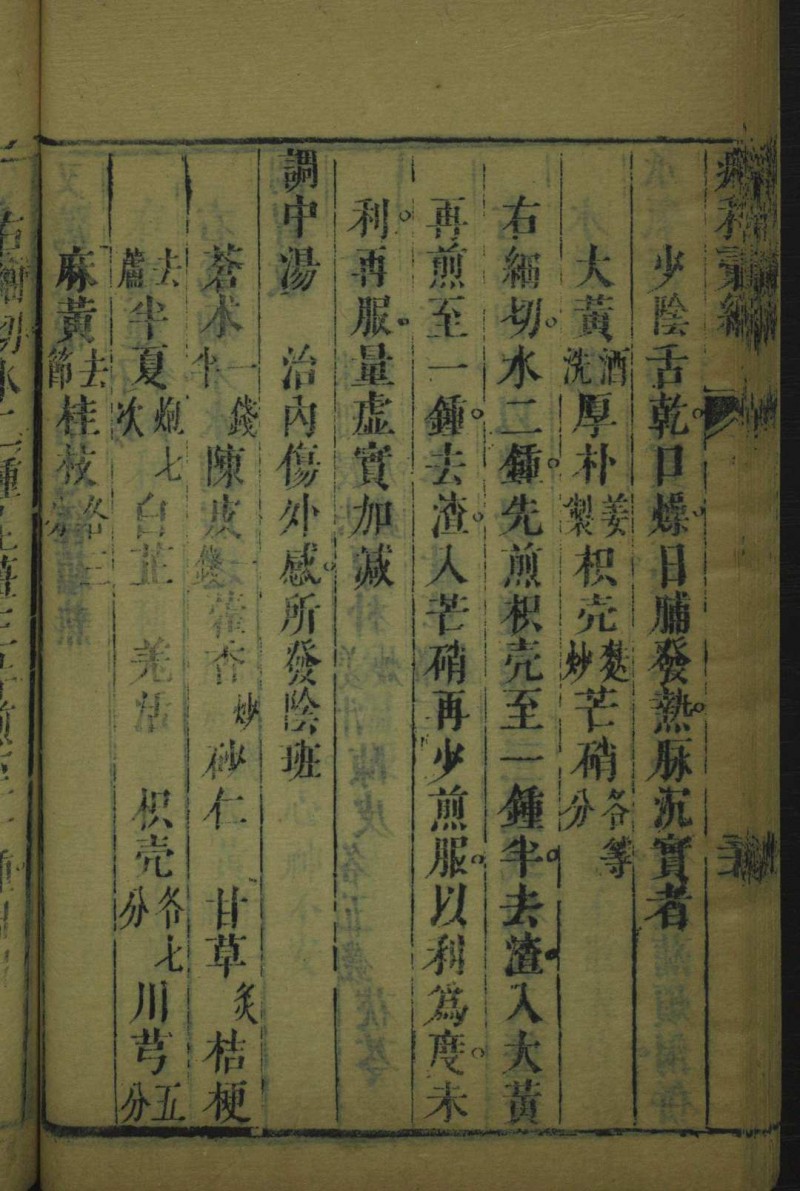 少陰舌乾口燥日晡發熱脉沉實者
大黃酒洗厚朴姜製枳壳麩炒芒硝各等分
右細切水二鍾先煎枳壳至一鍾半去渣入大黃
再煎至一鍾去渣入芒硝再少煎服以利爲度未
利再服量虛實加减
調中湯 治內傷外感所發陰班
蒼术一錢半陳皮一錢藿香炒砂仁 甘草炙桔梗
去蘆半夏炮七次白芷 羌活 枳壳各七分川芎五分
麻黃去節桂枝各三分